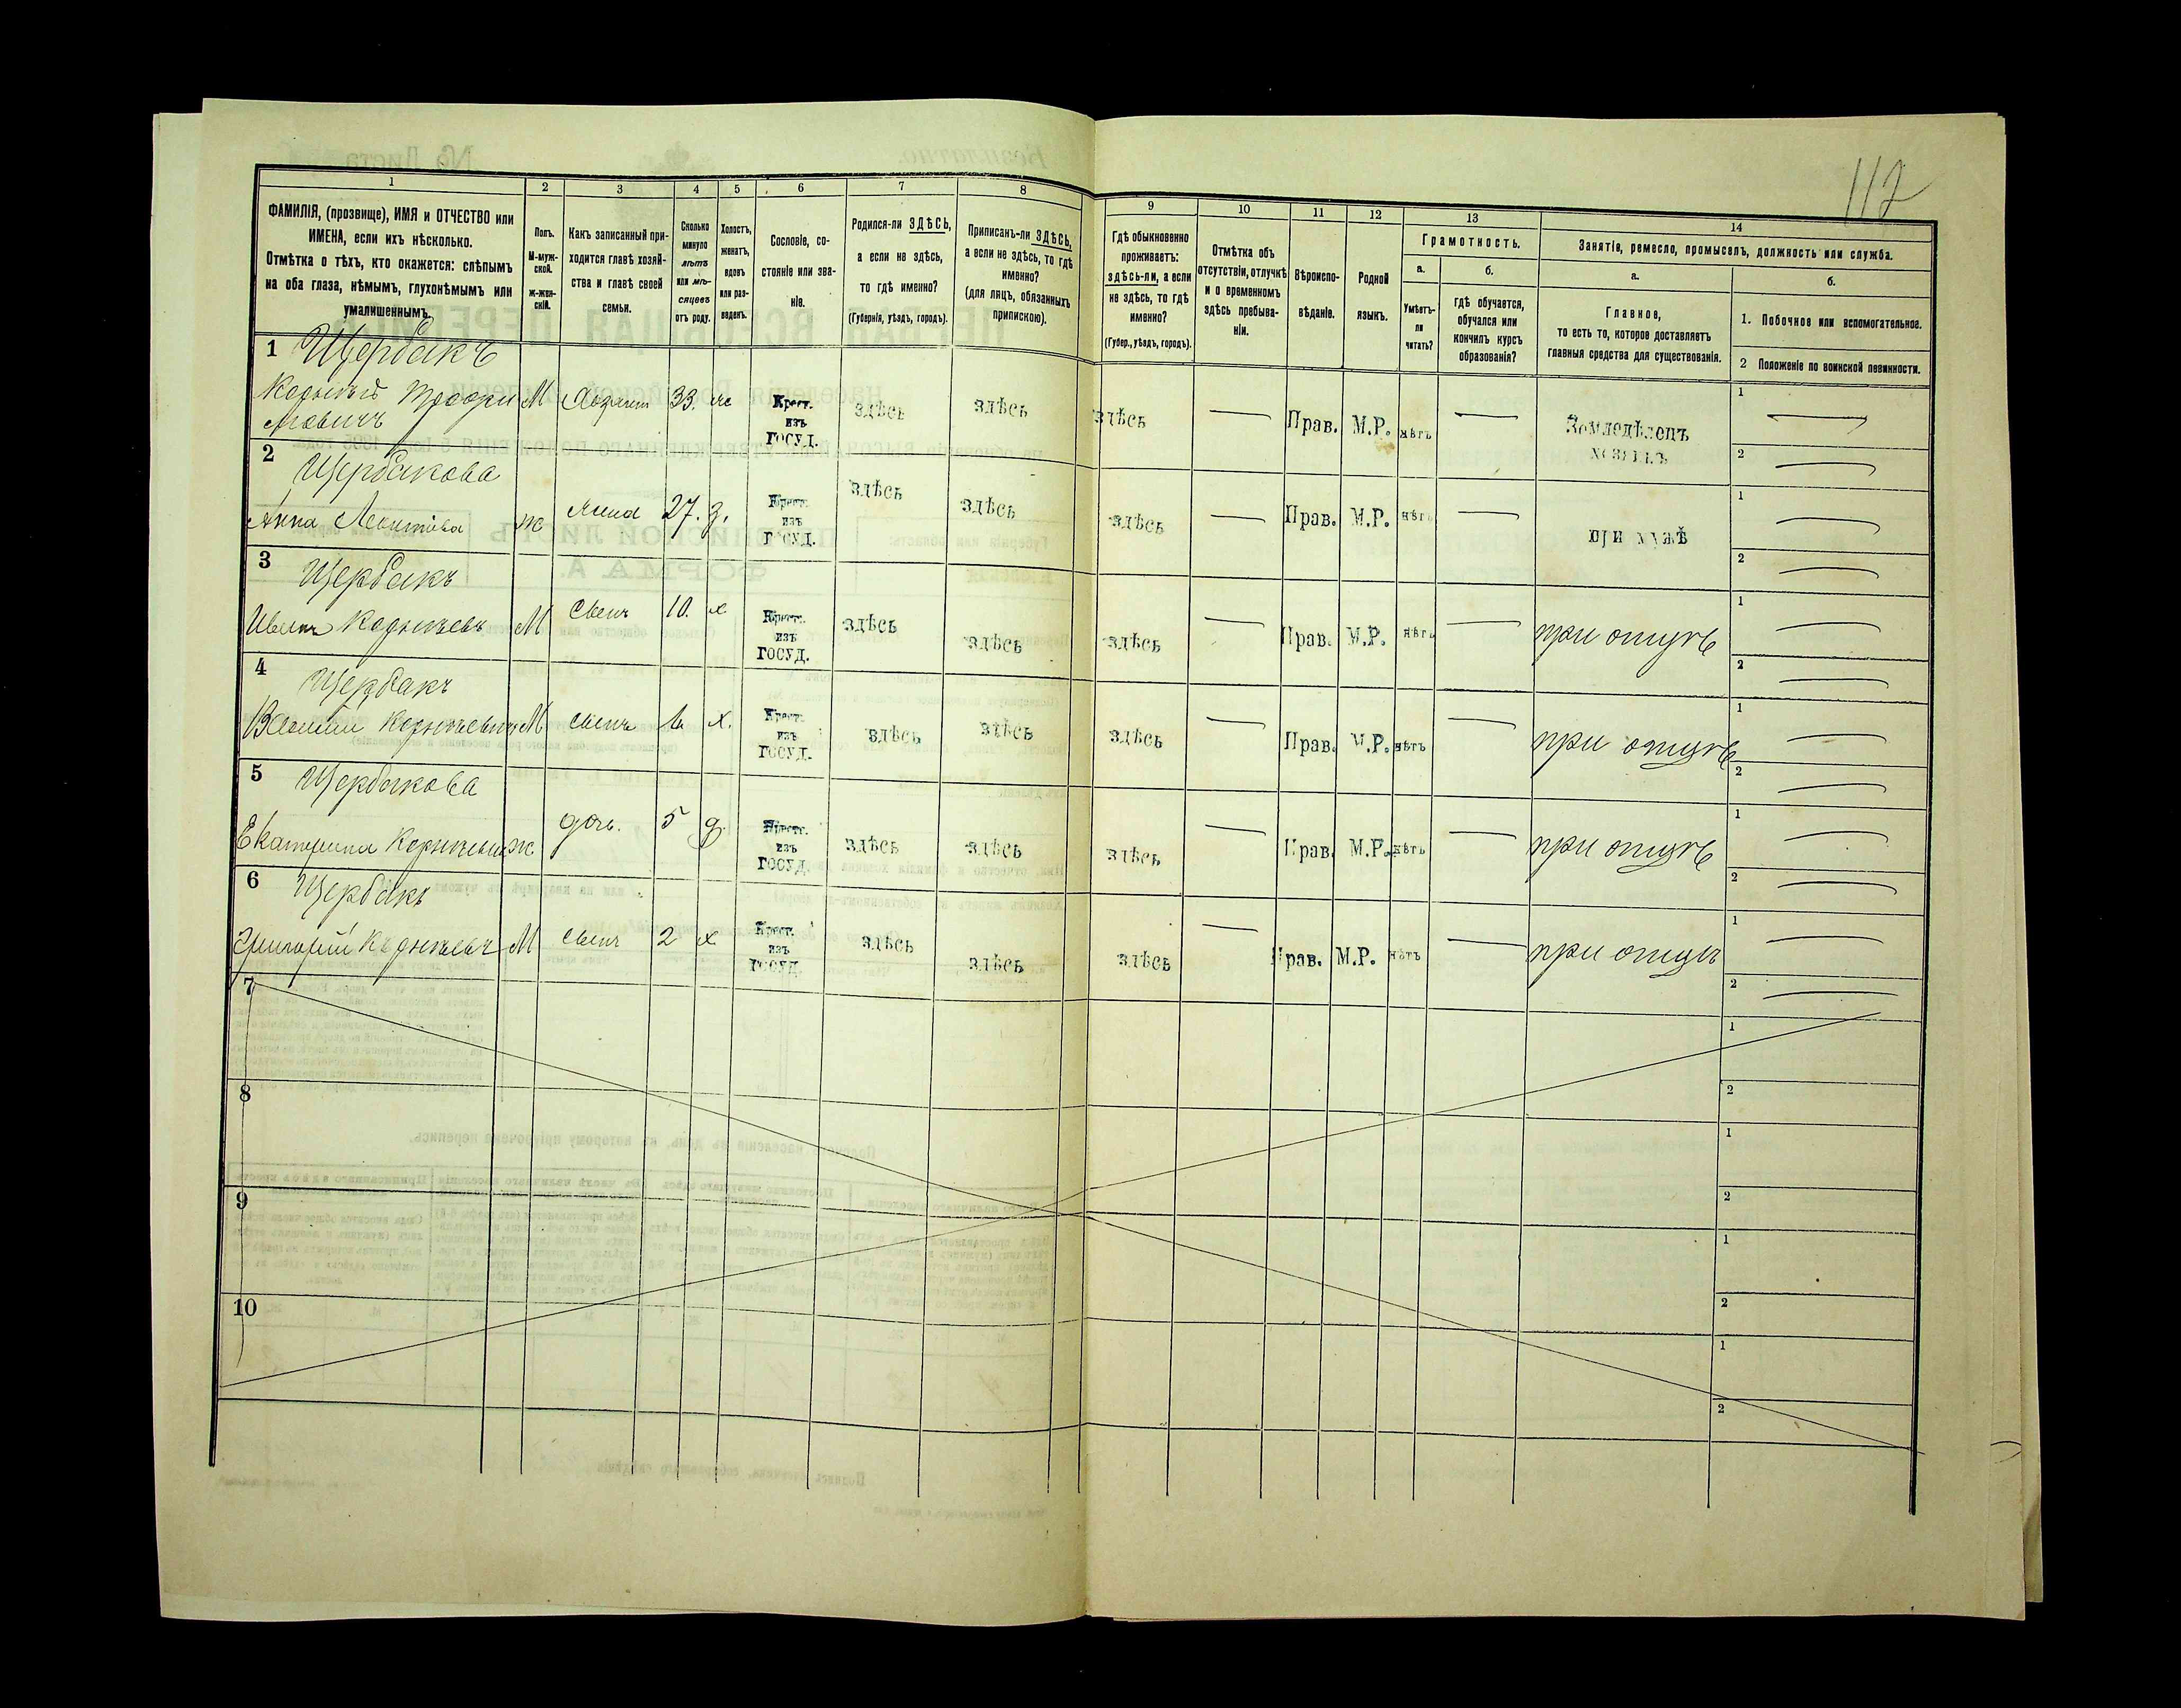 112
1
2
3
4
5
6
7
8
9
10
11
12
13
14
ФАМИЛІЯ, (прозвище), ИМЯ и ОТЧЕСТВО или
ИМЕНА, если ихъ нѣсколько.
Отмѣтка о тѣхъ, кто окажется: слѣпымъ
на оба глаза, нѣмымъ, глухонѣмымъ или
умалишеннымъ.
Полъ.
М-муж-
ской.
Ж-жен-
скій.
Какъ записанный при-
ходится главѣ хозяй-
ства и главѣ своей
семьи.
Сколько
минуло
лѣтъ
или мѣ-
сяцевъ
отъ роду.
Холостъ,
женатъ,
вдовъ
или раз-
веденъ.
Сословіе, со-
стояніе или зва-
ніе.
Родился-ли ЗДѢСЬ,
а если не здѣсь,
то гдѣ именно?
(Губернія, уѣздъ, городъ).
Приписанъ-ли ЗДѢСЬ,
а если не здѣсь, то гдѣ
именно?
(для лицъ, обязанныхъ
припискою).
Гдѣ обыкновенно
проживаетъ:
здѣсь-ли, а если
не здѣсь, то гдѣ
именно?
(Губер., уѣздъ, городъ).
Отмѣтка объ
отсутствіи, отлучкѣ
и о временномъ
здѣсь пребыва-
ніи.
Вѣроиспо-
вѣданіе.
Родной
языкъ.
Грамотность.
а.
Умѣетъ-
ли
читать?
б.
гдѣ обучается,
обучался или
кончилъ курсъ
образованія?
Занятія, ремесло, промыселъ, должность или служба.
а.
Главное,
то есть то, которое доставляетъ
главныя средства для существованія.
б.
1. Побочное или вспомогательное.
2 Положеніе по воинской повинности.
1 Щербакъ
М Хозяинъ 33. же Крест. изъ ГОСУД. здѣсь здѣсь здѣсь — Прав. М.Р. нѣтъ — Земледѣлецъ хозяинъ 1 — 2 —
2 Щербакова
Анна ж жена 27. з. Крест. изъ ГОСУД. здѣсь здѣсь здѣсь — Прав. М.Р. нѣтъ — при мужѣ 1 — 2 —
3 Щербакъ
Иванъ Корнѣевъ М сынъ 10. х Крест. изъ ГОСУД. здѣсь здѣсь здѣсь — Прав. М.Р. нѣтъ — при отцѣ 1 — 2 —
4 Щербакъ
М сынъ х. Крест. изъ ГОСУД. здѣсь здѣсь здѣсь — Прав. М.Р. нѣтъ — при отцѣ 1 — 2 —
5 Щербакова
Екатерина ж дочь. 5 д. Крест. изъ ГОСУД. здѣсь здѣсь здѣсь — Прав. М.Р. нѣтъ — при отцѣ 1 — 2 —
6 Щербакъ
Григорій М сынъ 2 х Крест. изъ ГОСУД. здѣсь здѣсь здѣсь — Прав. М.Р. нѣтъ — при отцѣ 1 — 2 —
7 1 2
8 1 2
9 1 2
10 1 2